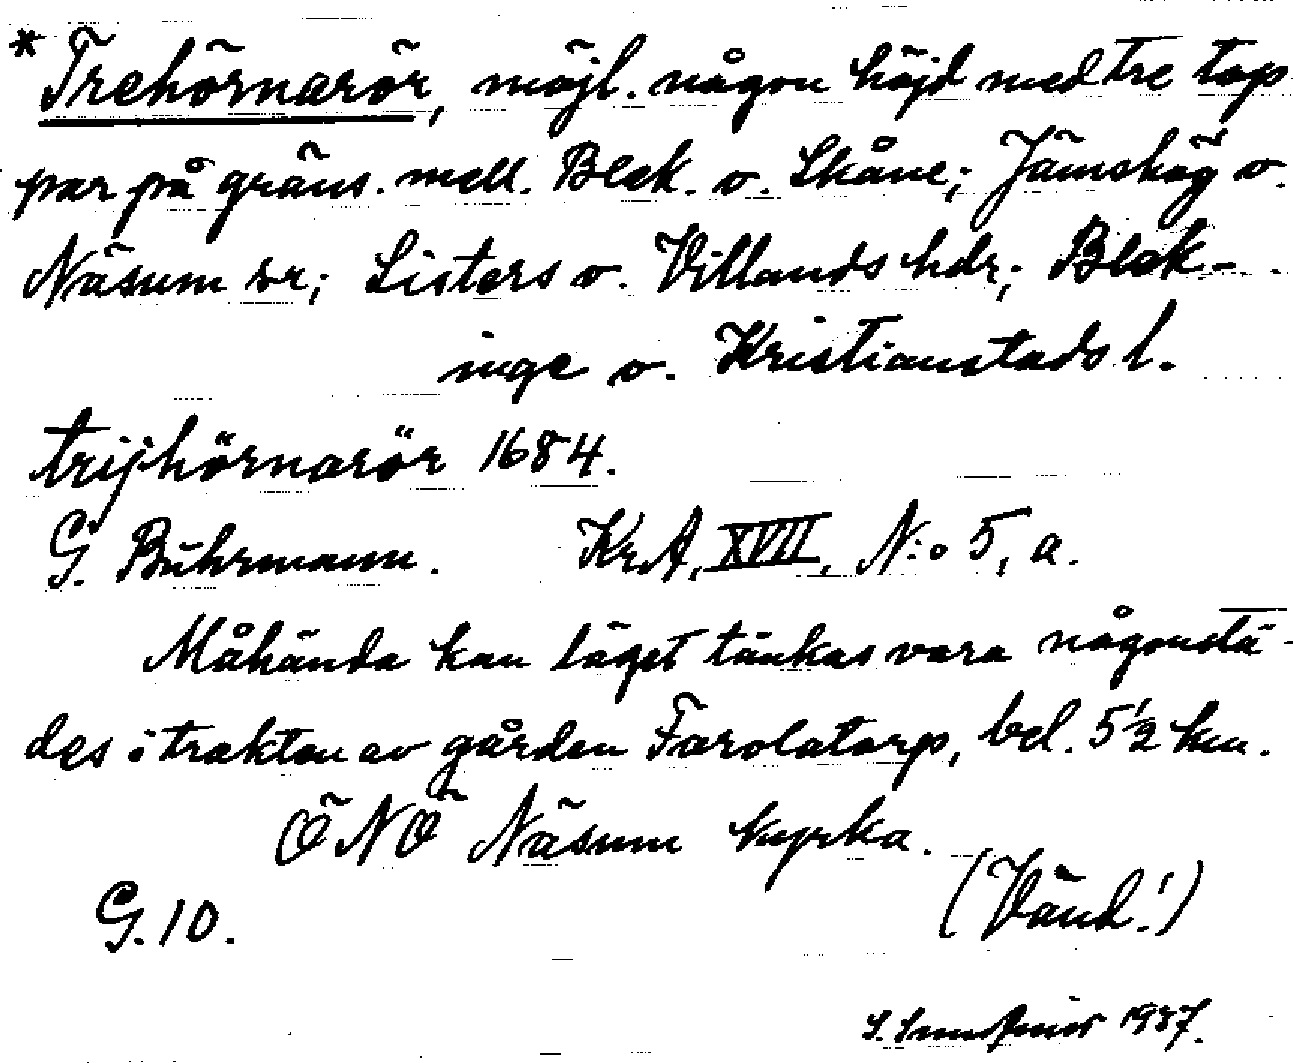 * Trehörnarör, möjl. någon höjd med tre top
par på gräns. mell. Blek. o. Skåne; Jämshög o.
Näsum snr; Listers o. Villands hdr; Blek-
inge o. Kristianstads l.
trijhörnarör 1684.
G. Buhrmann. KrA, XVII, N:o 5, a.
Måhända kan läget tänkas vara någonstä-
des i trakten av gården Farolatorp, bel. 5 1/2 km.
ÖNÖ Näsum kyrka.
(Vänd!)
G. 10.
1937.